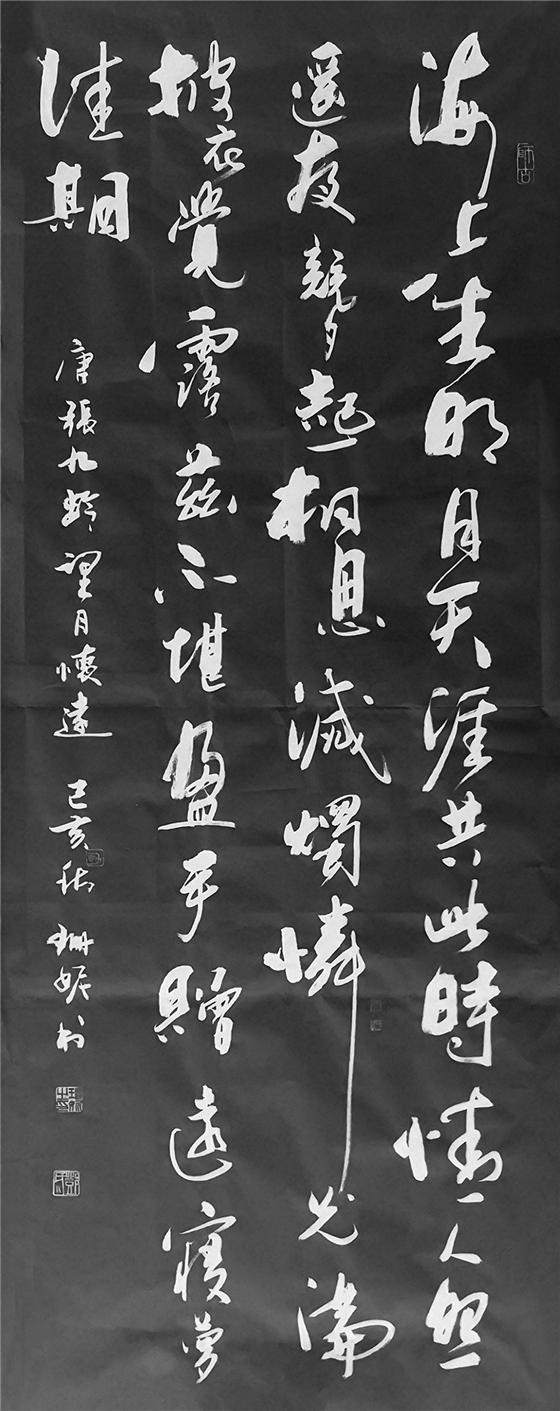 師古
海上生明月天涯共此時情人怨
遥夜競夕起相思滅燭憐光滿
披衣覺露茲不堪盈手贈還寢夢
佳期
唐張九齡望月懷遠 己亥秋 珊書